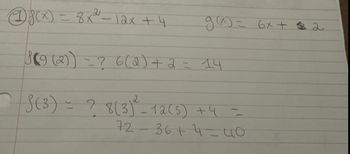 ① f(x) = 8x² - 12x + 4 g(x) = 6x + 2
f(g(2)) = ? 6(2) + 2 = 14
f(3) = ? 8(3)² - 12(3) + 4 =
72 - 36 + 4 = 40